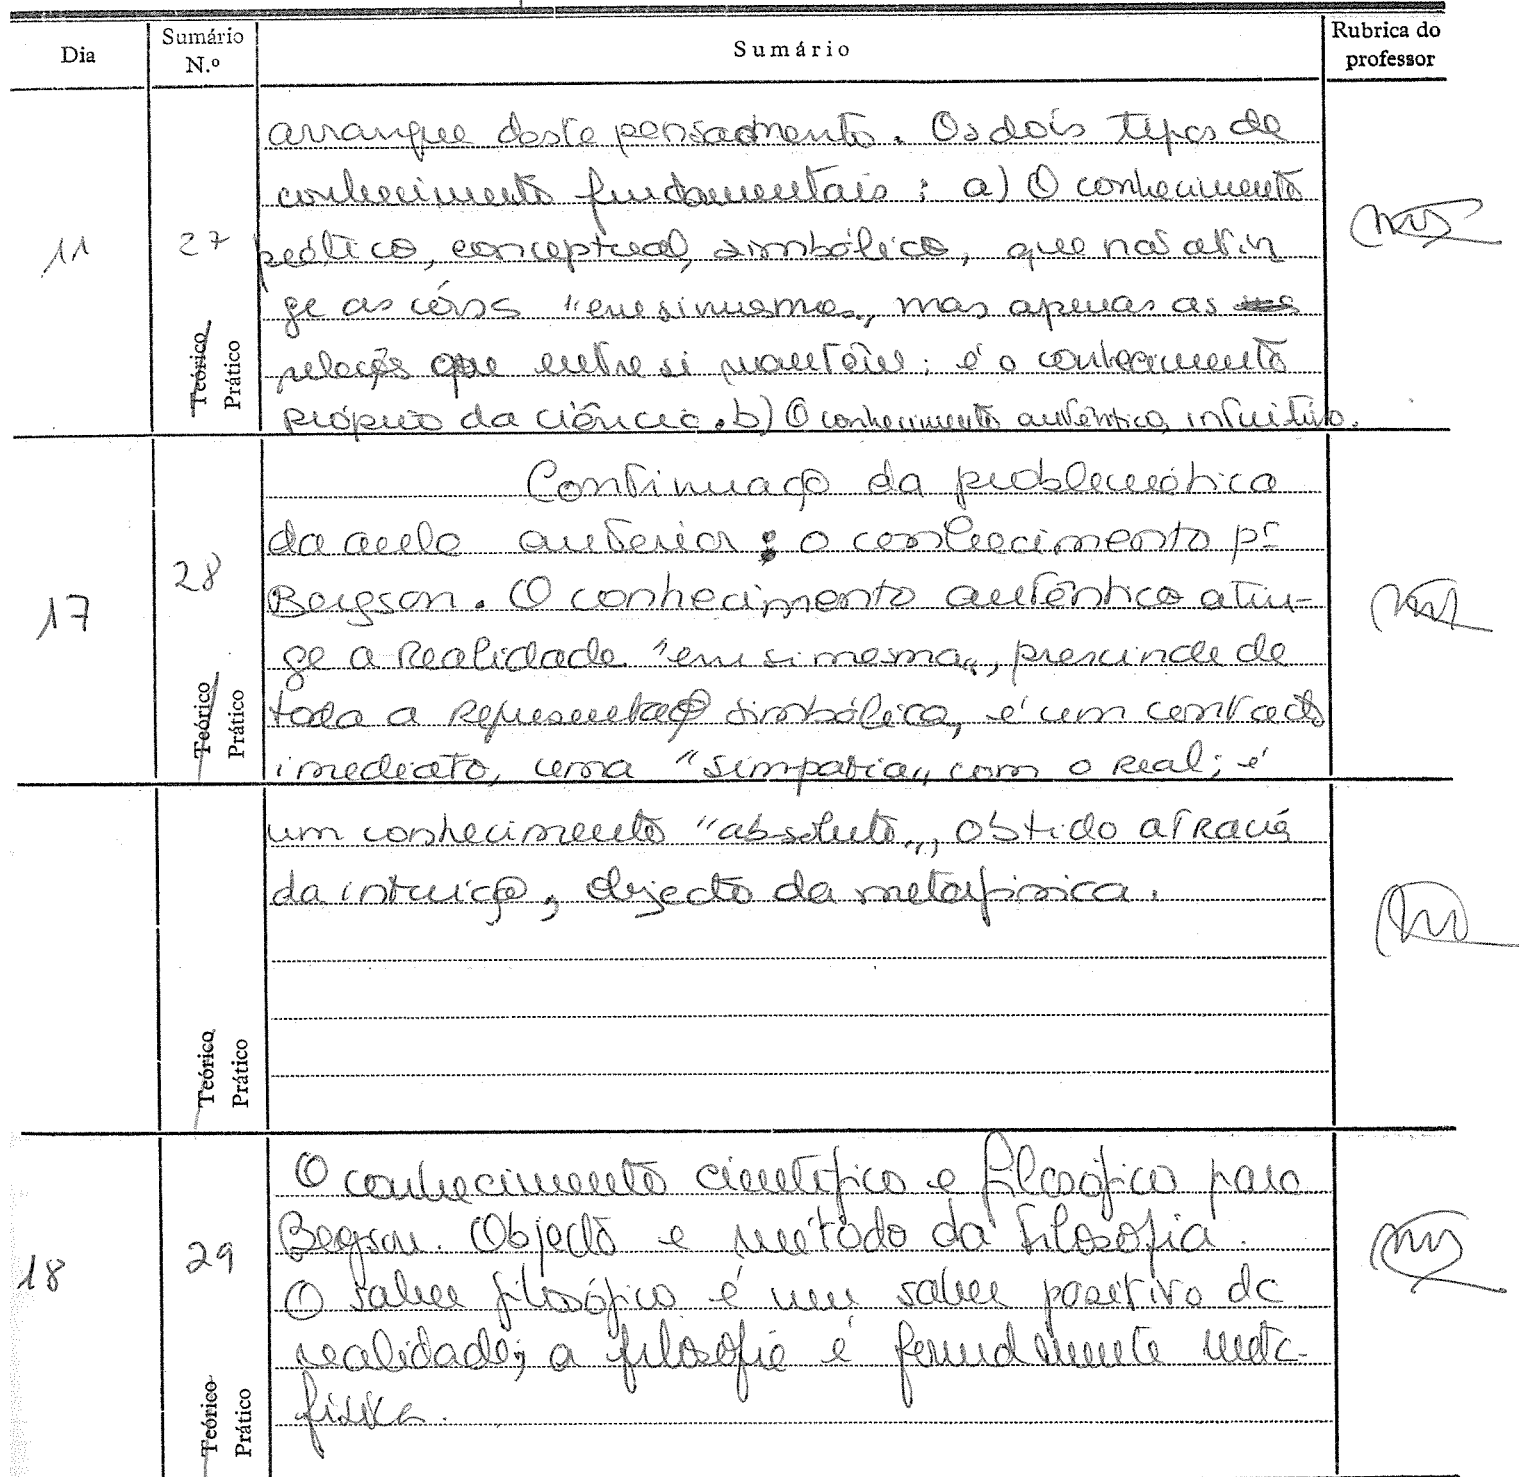 Dia Sumário N.º Sumário Rubrica do professor
11 27 Teórico Prático
arranque deste pensamento. Os dois tipos de
conhecimento fundamentais: a) O conhecimento
prático, conceptual, simbólico, que não atin
ge as coisas "em si mesmas„, mas apenas as
relações que entre si mantêm; é o conhecimento
próprio da ciência. b) O conhecimento autêntico, intuitivo.
17 28 Teórico Prático
Continuação da problemática
da aula anterior: o conhecimento pª
Bergson. O conhecimento autêntico atin-
ge a Realidade "em si mesma„, prescinde de
toda a Representação simbólica, é um contacto
imediato, uma "simpatia„ com o Real; é
Teórico Prático
um conhecimento "absoluto„, obtido através
da intuição, objecto da metafísica.
18 29 Teórico Prático
O conhecimento científico e filosófico para
Begson. Objecto e método da Filosofia.
O saber filosófico é um saber positivo da
realidade; a filosofia é fundmente meta-
física.